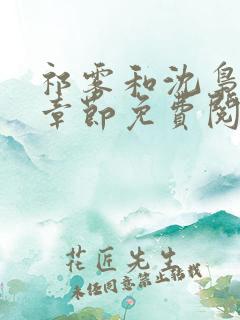 祁雾和沈鳥
章節免費閱
花匠先生
未经同意禁止转载